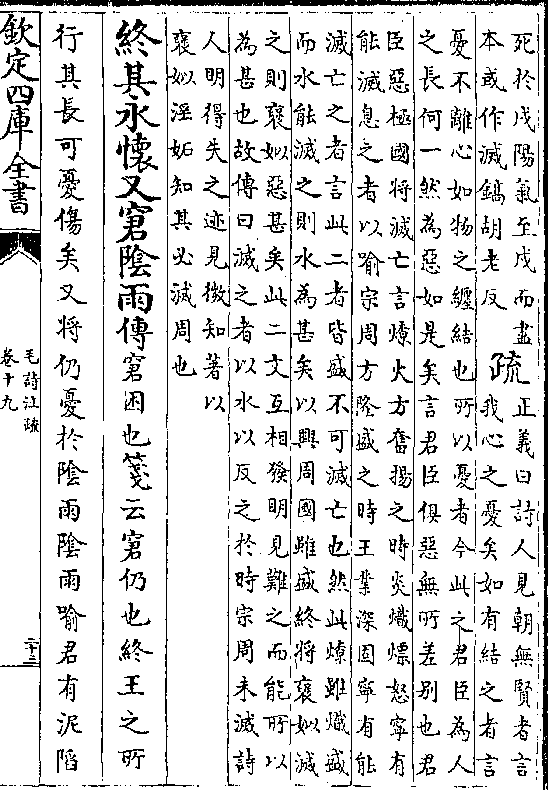 死於戌陽氣至戌而盡
本或作滅鎬胡老反
疏
正義曰詩人見朝無賢者言
我心之憂矣如有結之者言
憂不離心如物之纏結也所以憂者今此之君臣為人
之長何一然為惡如是矣言君臣俱惡無所差别也君
臣惡極國將滅亡言燎火方奮揚之時炎熾熛怒寧有
能滅息之者以喻宗周方隆盛之時王業深固寧有能
滅亡之者言此二者皆盛不可滅亡也然此燎雖熾盛
而水能滅之則水為甚矣以興周國雖盛終將襃姒滅
之則襃姒惡甚矣此二文互相發明見難之而能所以
為甚也故傳曰滅之者以水以反之於時宗周未滅詩
人明得失之迹見微知著以
襃姒淫妬知其必滅周也
終其永懷又窘隂雨傳窘困也箋云窘仍也終王之所
行其長可憂傷矣又將仍憂於隂雨隂雨喻君有泥䧟
欽定四庫全書
毛詩注疏
卷十九
二十三